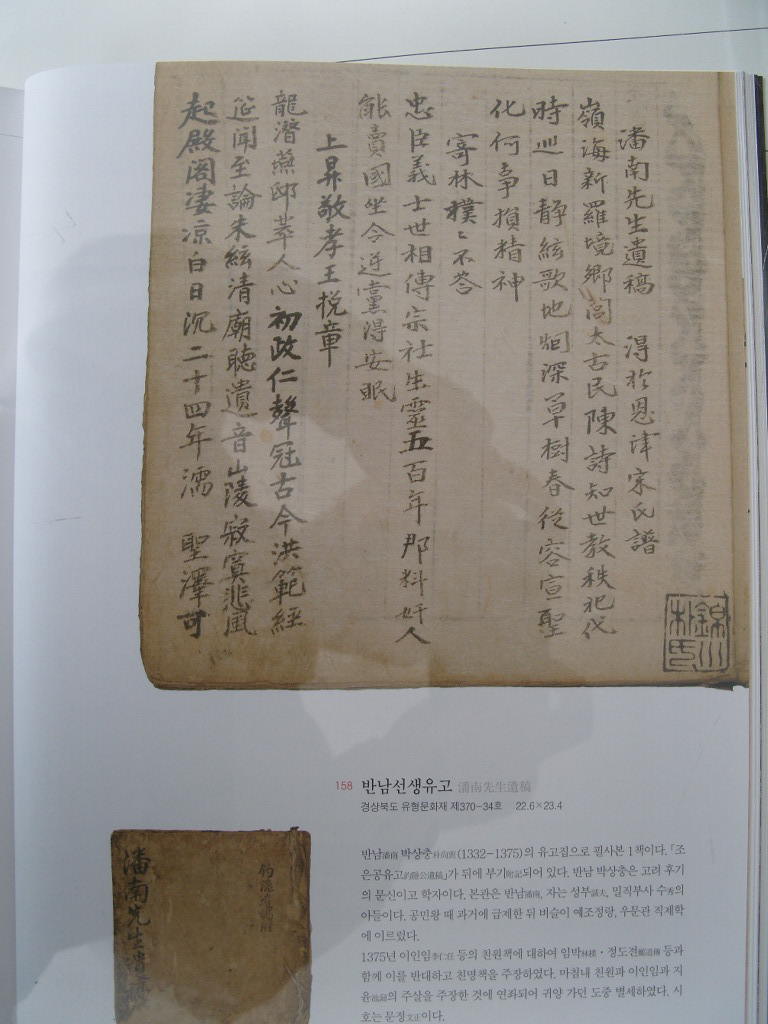 潘南先生遺稿 得於恩津宋氏譜
嶺海新羅境鄉閭太古民陳詩知世教秩祀代
時巡日靜絃歌地烟深草樹春從容宣聖
化何爭損精神
寄林樸樸不荅
忠臣義士世相傳宗社生靈五百年那料奸人
能賣國坐令逆黨得安眠
上昇敬孝王挽章
龍潛燕邸萃人心初政仁聲冠古今洪範經
筵聞至論朱絃清廟聽遺音山陵寂寞悲風
起殿閣凄凉白日沉二十四年濡聖澤可
錦川
朴氏
158 반남선생유고 潘南先生遺稿
경상북도 유형문화재 제370-34호 22.6×23.4
반남潘南 박상충朴尙衷(1332-1375)의 유고집으로 필사본 1책이다. 「조
은공유고釣隱公遺稿」가 뒤에 부기附記되어 있다. 반남 박상충은 고려 후기
의 문신이고 학자이다. 본관은 반남潘南, 자는 성부誠夫, 밀직부사 수秀의
아들이다. 공민왕 때 과거에 급제한 뒤 벼슬이 예조정랑, 우문관 직제학
에 이르렀다.
1375년 이인임李仁任 등의 친원책에 대하여 임박林樸·정도전鄭道傳 등과
함께 이를 반대하고 친명책을 주장하였다. 마침내 친원파 이인임과 지
윤池奫의 주살을 주장한 것에 연좌되어 귀양 가던 도중 별세하였다. 시
호는 문정文正이다.
潘南先生遺稿
釣隱遺稿附